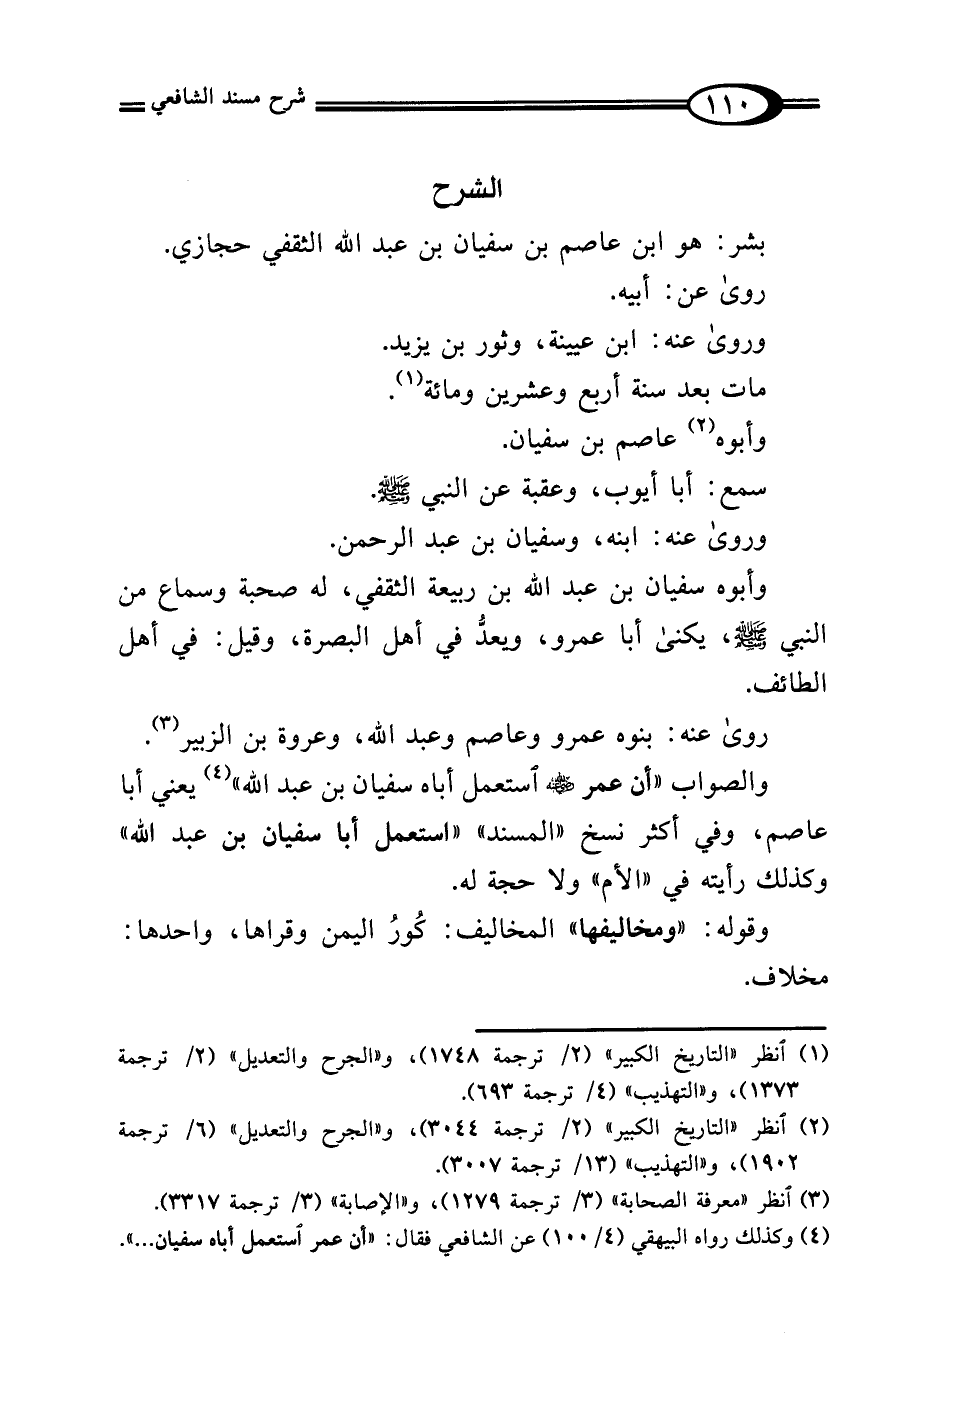 ١١٠ شرح مسند الشافعي
الشرح
بشر: هو ابن عاصم بن سفيان بن عبد الله الثقفي حجازي.
روىٰ عن: أبيه.
وروىٰ عنه: ابن عيينة، وثور بن يزيد.
مات بعد سنة أربع وعشرين ومائة(١).
وأبوه(٢) عاصم بن سفيان.
سمع: أبا أيوب، وعقبة عن النبي ﷺ.
وروىٰ عنه: ابنه، وسفيان بن عبد الرحمن.
وأبوه سفيان بن عبد الله بن ربيعة الثقفي، له صحبة وسماع من
النبي ﷺ، يكنىٰ أبا عمرو، ويعدُّ في أهل البصرة، وقيل: في أهل
الطائف.
روىٰ عنه: بنوه عمرو وعاصم وعبد الله، وعروة بن الزبير(٣).
والصواب «أن عمر ﵁ ٱستعمل أباه سفيان بن عبد الله»(٤) يعني أبا
عاصم، وفي أكثر نسخ «المسند» «استعمل أبا سفيان بن عبد الله»
وكذلك رأيته في «الأم» ولا حجة له.
وقوله: «ومخاليفها» المخاليف: كُورُ اليمن وقراها، واحدها:
مخلاف.
(١) ٱنظر «التاريخ الكبير» (٢/ ترجمة ١٧٤٨)، و«الجرح والتعديل» (٢/ ترجمة
١٣٧٣)، و«التهذيب» (٤/ ترجمة ٦٩٣).
(٢) ٱنظر «التاريخ الكبير» (٢/ ترجمة ٣٠٤٤)، و«الجرح والتعديل» (٦/ ترجمة
١٩٠٢)، و«التهذيب» (١٣/ ترجمة ٣٠٠٧).
(٣) ٱنظر «معرفة الصحابة» (٣/ ترجمة ١٢٧٩)، و«الإصابة» (٣/ ترجمة ٣٣١٧).
(٤) وكذلك رواه البيهقي (٤/ ١٠٠) عن الشافعي فقال: «أن عمر ٱستعمل أباه سفيان...».